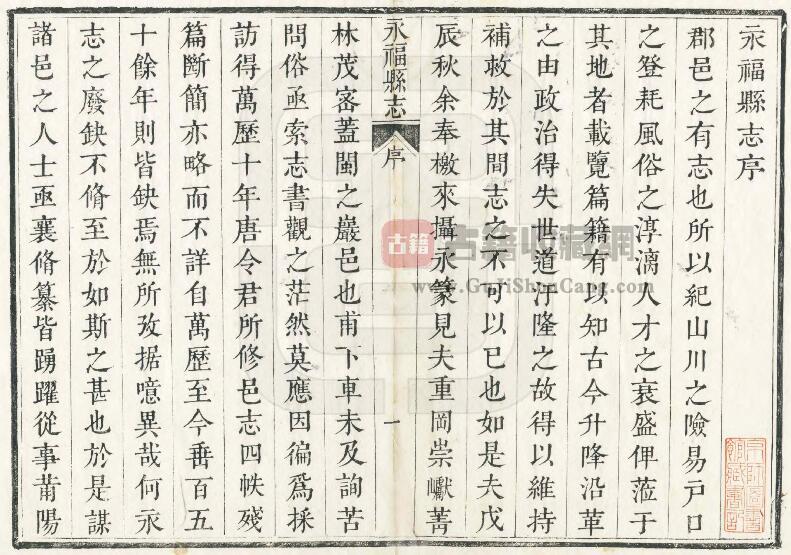 永福縣志序
郡邑之有志也所以紀山川之險易戸口
之登耗風俗之淳漓人才之衰盛俾蒞于
其地者載覽篇籍有以知古今升降沿革
之由政治得失世道汙隆之故得以維持
補救於其間志之不可以已也如是夫戊
辰秋余奉檄來攝永篆見夫重岡崇巘菁
永福縣志
序
一
林茂密蓋閩之巖邑也甫下車未及詢苦
問俗亟索志書觀之茫然莫應因徧爲採
訪得萬歷十年唐令君所修邑志四帙殘
篇斷簡亦略而不詳自萬歷至今垂百五
十餘年則皆缺焉無所攷据噫異哉何永
志之廢缺不脩至於如斯之甚也於是謀
諸邑之人士亟襄脩纂皆踴躍從事莆陽
古籍
古籍收藏網
www.GuJiShouCang.com